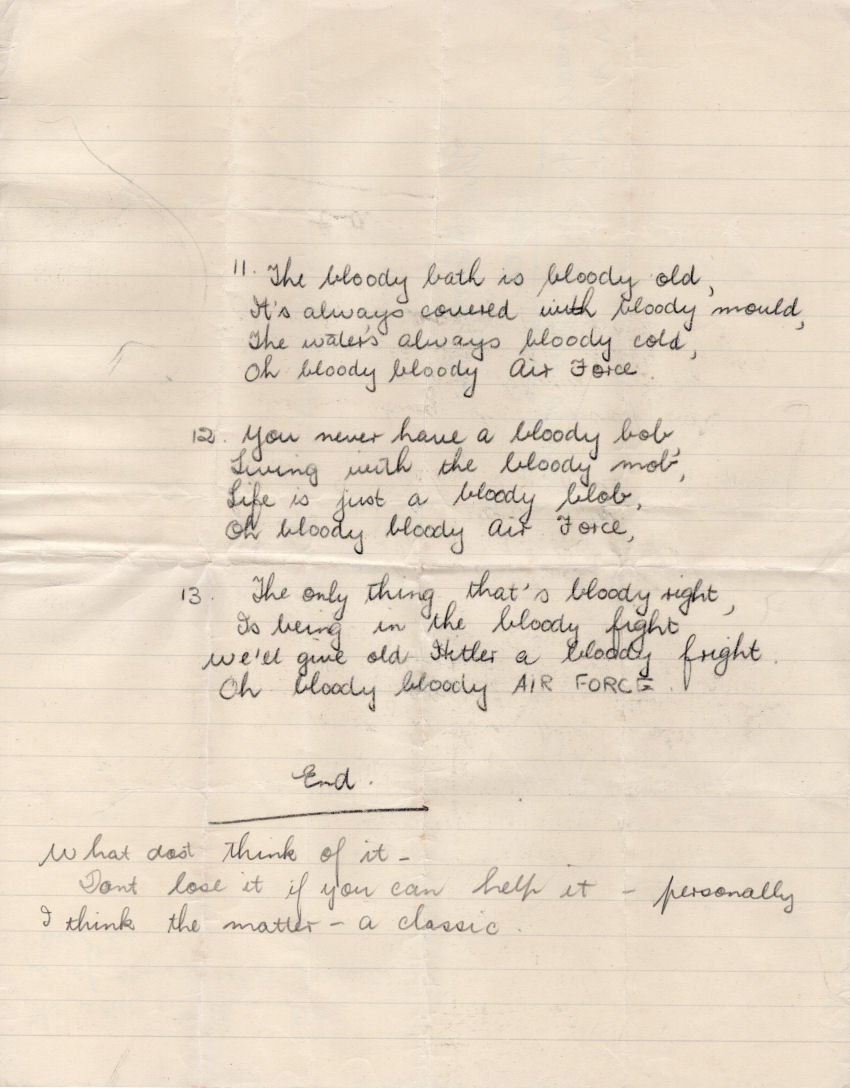 11. The bloody bath is bloody old,
It's always covered with bloody mould,
The water's always bloody cold,
Oh bloody bloody Air Force.
12. You never have a bloody bob,
Living with the bloody mob,
Life is just a bloody blob,
Oh bloody bloody Air Force,
13. The only thing that's bloody right,
Is being in the bloody fight
We'll give old Hitler a bloody fright.
Oh bloody bloody AIR FORCE.
End.
What dost think of it -
Dont lose it if you can help it - personally
I think the matter - a classic.